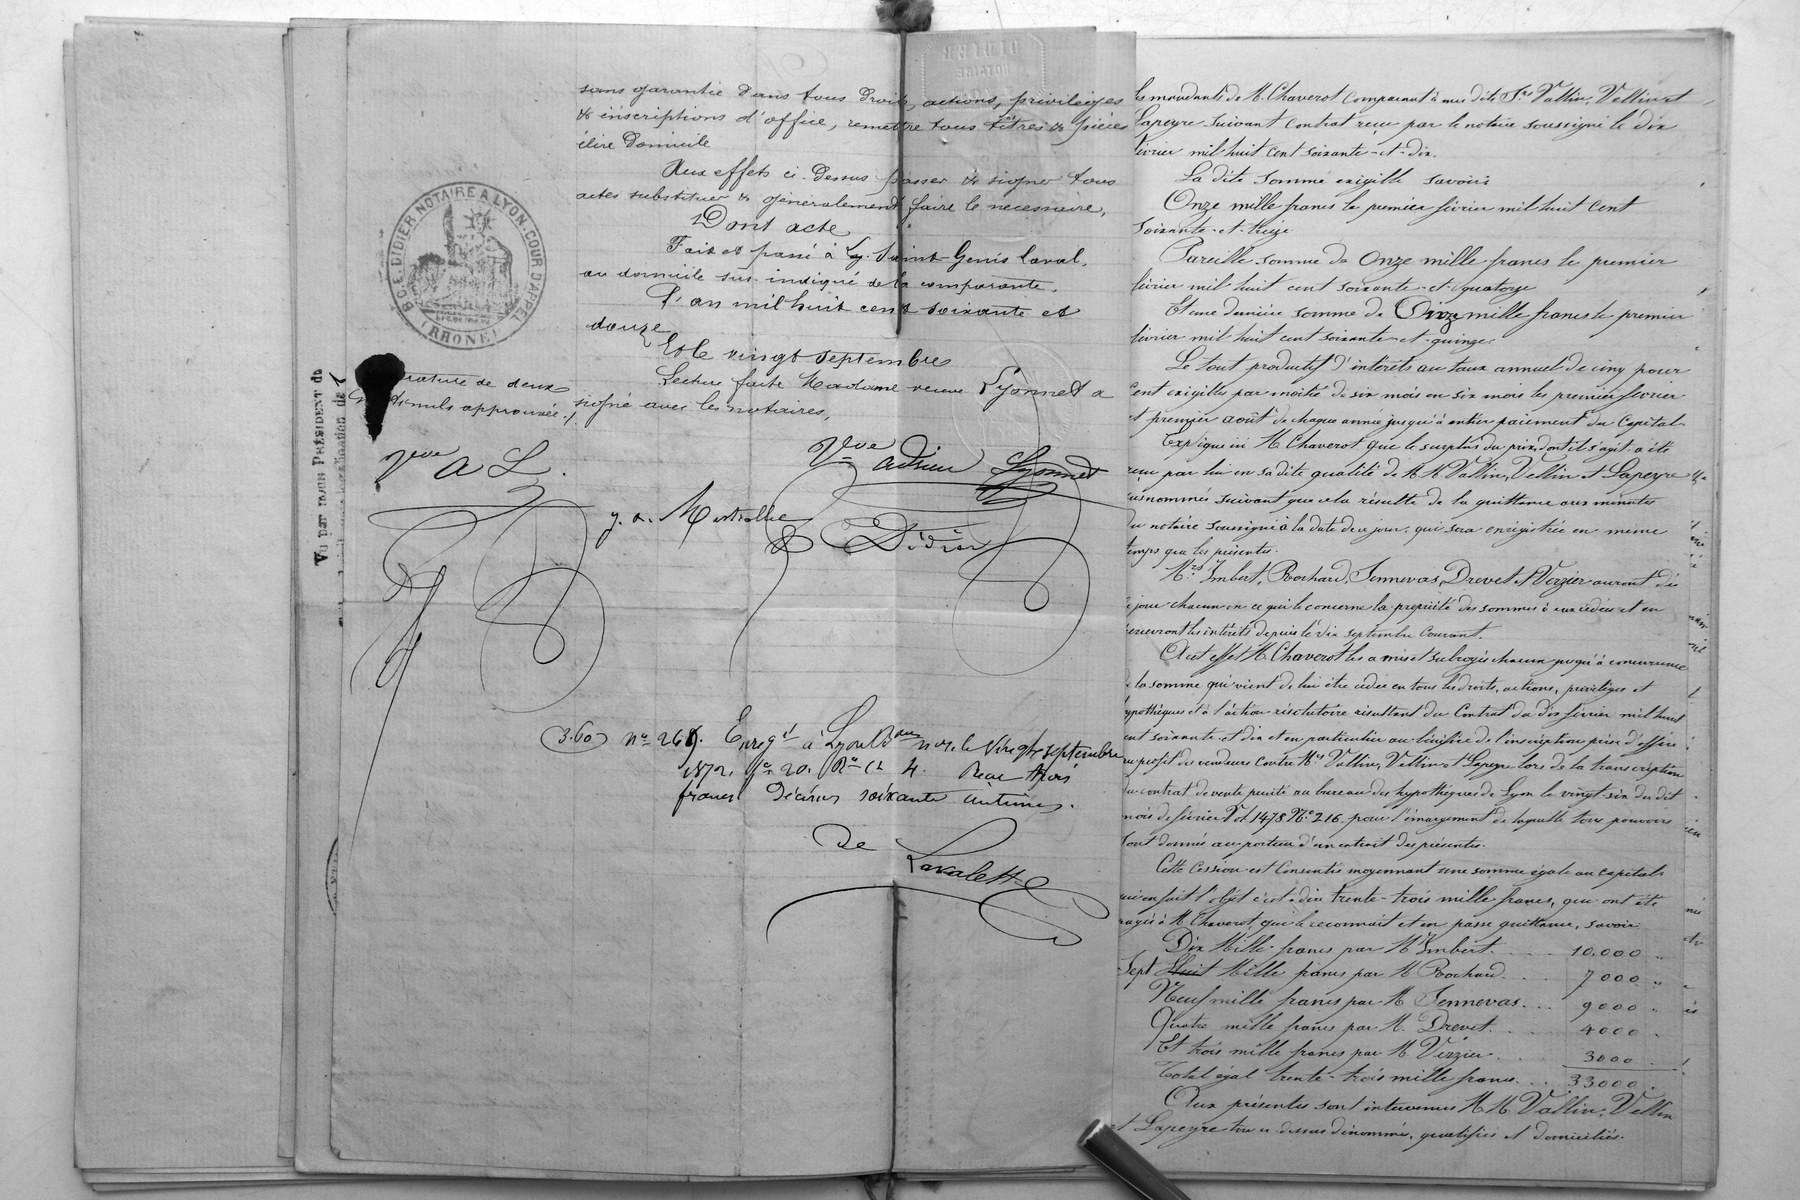 sans garantie dans tous droits, actions, privilèges
& inscriptions d'office, remettre tous titres & pièces
élire Domicile
Aux effets ci-dessus passer & signer tous
actes substituer & généralement faire le nécessaire,
Dont acte
Fait et passé à Saint-Genis Laval,
au domicile sus-indiqué de la comparante.
L'an mil huit cent soixante et
douze
Et le vingt septembre
Lecture faite Madame veuve Lyonnet a
signé avec les notaires,
rature de deux
nuls approuvée./.
Vve A L.
Vve Adrien Lyonnet
Didier
BGE. DIDIER NOTAIRE A LYON. COUR D'APPEL
(RHONE)
VU PAR NOUS PRÉSIDENT du
législation de
3.60 No 268. Enregt à Lyon le vingt septembre
1872. fo 20. Ro Ce 4. Reçu trois
francs Décimes soixante centimes.
De Lavalette
DIDIER
NOTAIRE
les mandants de M. Chaverot comparant à mes dits Srs Vallin, Vellin et
Lapeyre suivant contrat reçu par le notaire soussigné le dix
février mil huit cent soixante-et-dix.
La dite somme exigible savoir:
Onze mille francs le premier février mil huit cent
soixante-et-treize
Pareille somme de Onze mille francs le premier
février mil huit cent soixante-et-quatorze
Et une dernière somme de Onze mille francs le premier
février mil huit cent soixante-et-quinze.
Le tout productif d'intérêts au taux annuel de cinq pour
cent exigibles par moitié de six mois en six mois les premier février
et premier août de chaque année jusqu'à entier paiement du Capital.
Explique ici M. Chaverot que le surplus du prix dont il s'agit a été
reçu par lui en sa dite qualité de MM Vallin, Vellin et Lapeyre
susnommés suivant que cela résulte de la quittance aux minutes
du notaire soussigné à la date de ce jour, qui sera enregistrée en même
temps que les présentes.
Mrs Imbert, Bochard, Jennevas, Drevet et Verzier auront dès
ce jour chacun en ce qui le concerne la propriété des sommes à eux cédées et en
recevront les intérêts depuis le dix septembre Courant.
A cet effet M. Chaverot les a mis et subrogés chacun jusqu'à concurrence
de la somme qui vient de lui être cédée en tous les droits, actions, privilèges et
hypothèques et à l'action résolutoire résultant du Contrat du dix février mil huit
cent soixante-et-dix et en particulier au bénéfice de l'inscription prise d'office
au profit des vendeurs contre Mrs Vallin, Vellin et Lapeyre lors de la transcription
du contrat de vente précité au bureau des hypothèques de Lyon le vingt-six du dit
mois de février Vol 1478 No 216, pour l'émargement de laquelle tous pouvoirs
sont donnés au porteur d'un extrait des présentes.
Cette Cession est Consentie moyennant une somme égale au capital
qui en fait l'objet c'est-à-dire trente-trois mille francs, qui ont été
payés à M. Chaverot, qui le reconnaît et en passe quittance, savoir
Dix Mille francs par M. Imbert. 10.000 "
Sept Huit Mille francs par M Bochard. 7000 "
Neuf mille francs par M Jennevas. 9000 "
Quatre mille francs par M. Drevet. 4000 "
Et trois mille francs par M. Verzier. 3000
Total égal trente-trois mille francs. 33000.
Aux présentes sont intervenus MM. Vallin, Vellin
et Lapeyre tous ci-dessus dénommés, qualifiés et domiciliés.